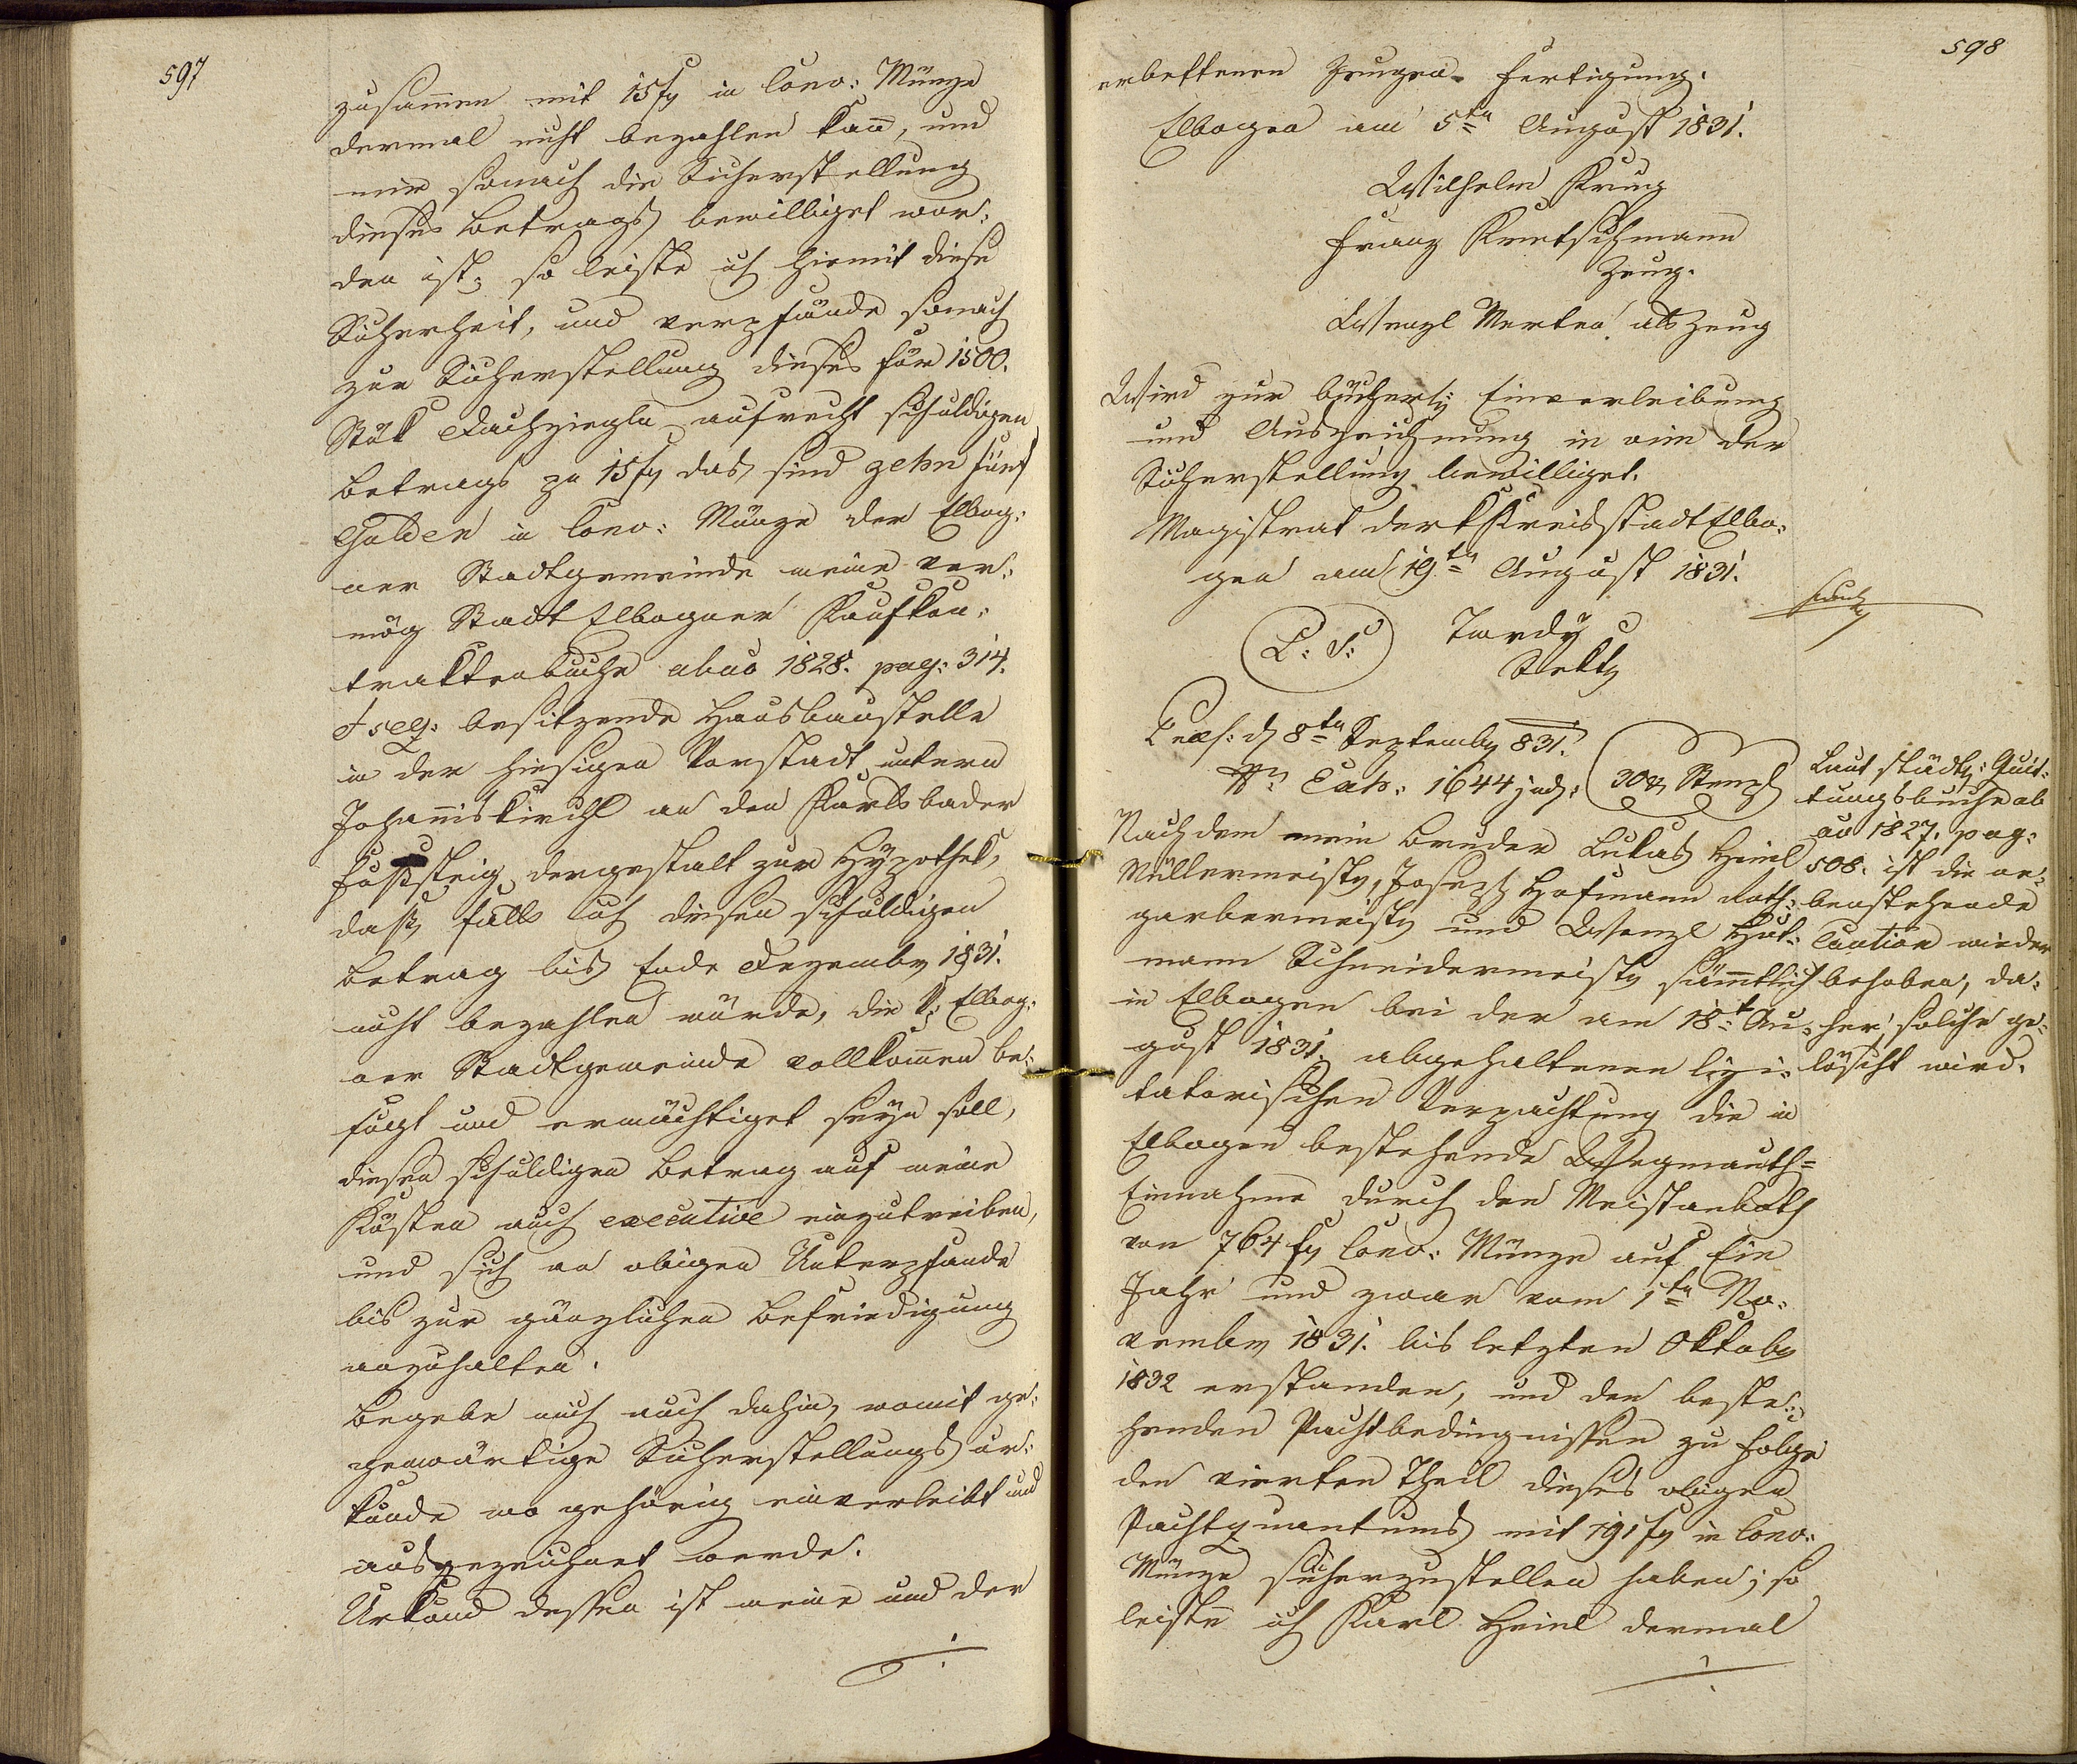 597
zusam̄en mit 15 f in Conv: Münze
dermal nicht bezahlen kan̄, und
mir sonach die Sicherstellung
dieses Betrags bewilliget wor:
den ist; so leiste ich hiemit diese
Sicherheit, und verpfände sonach
zur Sicherstellung dieses für 1500.
Stük Dachziegln aufrecht schuldigen
Betrags zu 15 f das sind zehn fünf
Gulden in Conv: Münze der Elbog:
ner Stadtgemeinde meine ver:
mög Stadt Elbogner Kaufkon:
traktenbuche ab ao 1828. pag: 314.
et seq: besitzende Hausbaustelle
in der hiesigen Vorstadt untern
Johan̄iskirchl an den Karlsbader
Fußsteig dergestalt zur Hypothek,
daß, falls ich diesen schuldigen
Betrag bis Ende Dezember 1831.
nicht bezahlen würde, die Elbog:
ner Stadtgemeinde vollkom̄en be:
fugt und ermächtiget seyn soll,
diesen schuldigen Betrag auf meine
Kösten auch executive einzutreiben,
und sich an obigen Unterpfande
bis zur gänzlichen Befriedigung
anzuhalten.
Begebe mich auch dahin, womit ge:
genwärtige Sicherstellungs ur:
kunde wo gehörig einverleibt und
ausgezeichnet werde.
Urkund dessen ist meine und der
598
erbettenen Zeugen Fertigung.
Elbogen am 5ten August 1831.
Wilhelm Krug
Franz Kretschmann
Zeug.
Wenzl Merten als Zeug
Wird zur bücherl: Einverleibung
und Auszeichnung in vim der
Sicherstellung bewilliget.
Magistrat der k Kreisstadt Elbo:
gen am 19ten August 1831.
L: S: Tardy
Präs: d 8ten September 831.
Nr: Exh: 1644 jud: 30 x Stempl
Nachdem mein Bruder Lukas Heinl
Müllermeister, Joseph Hofmann Roth:
garbermeister und Wenzl Hut:
mann Schneidermeister sämmtlich
in Elbogen bei der am 18t Au:
gust 1831. abgehaltenen lizi:
tatorischen Verpachtung die in
Elbogen bestehende Wegmauth=
Einnahme durch den Meistanboth
von 764 f Conv: Münze auf Ein
Jahr und zwar vom 1ten No:
vember 1831. bis letzten Oktober
1832 erstanden, und den beste:
henden Pachtbedingnissen zu Folge
den vierten Theil dieses obigen
Pachtquantums mit 191 f in Conv:
Münze sicherzustellen haben; so
leiste ich Karl Heinl dermal
Laut städt: Quit:
tungsbuche ab
ao 1827. pag:
508. ist die ne:
benstehende
Caution wieder
behoben, da:
her, solche ge:
löscht wird.